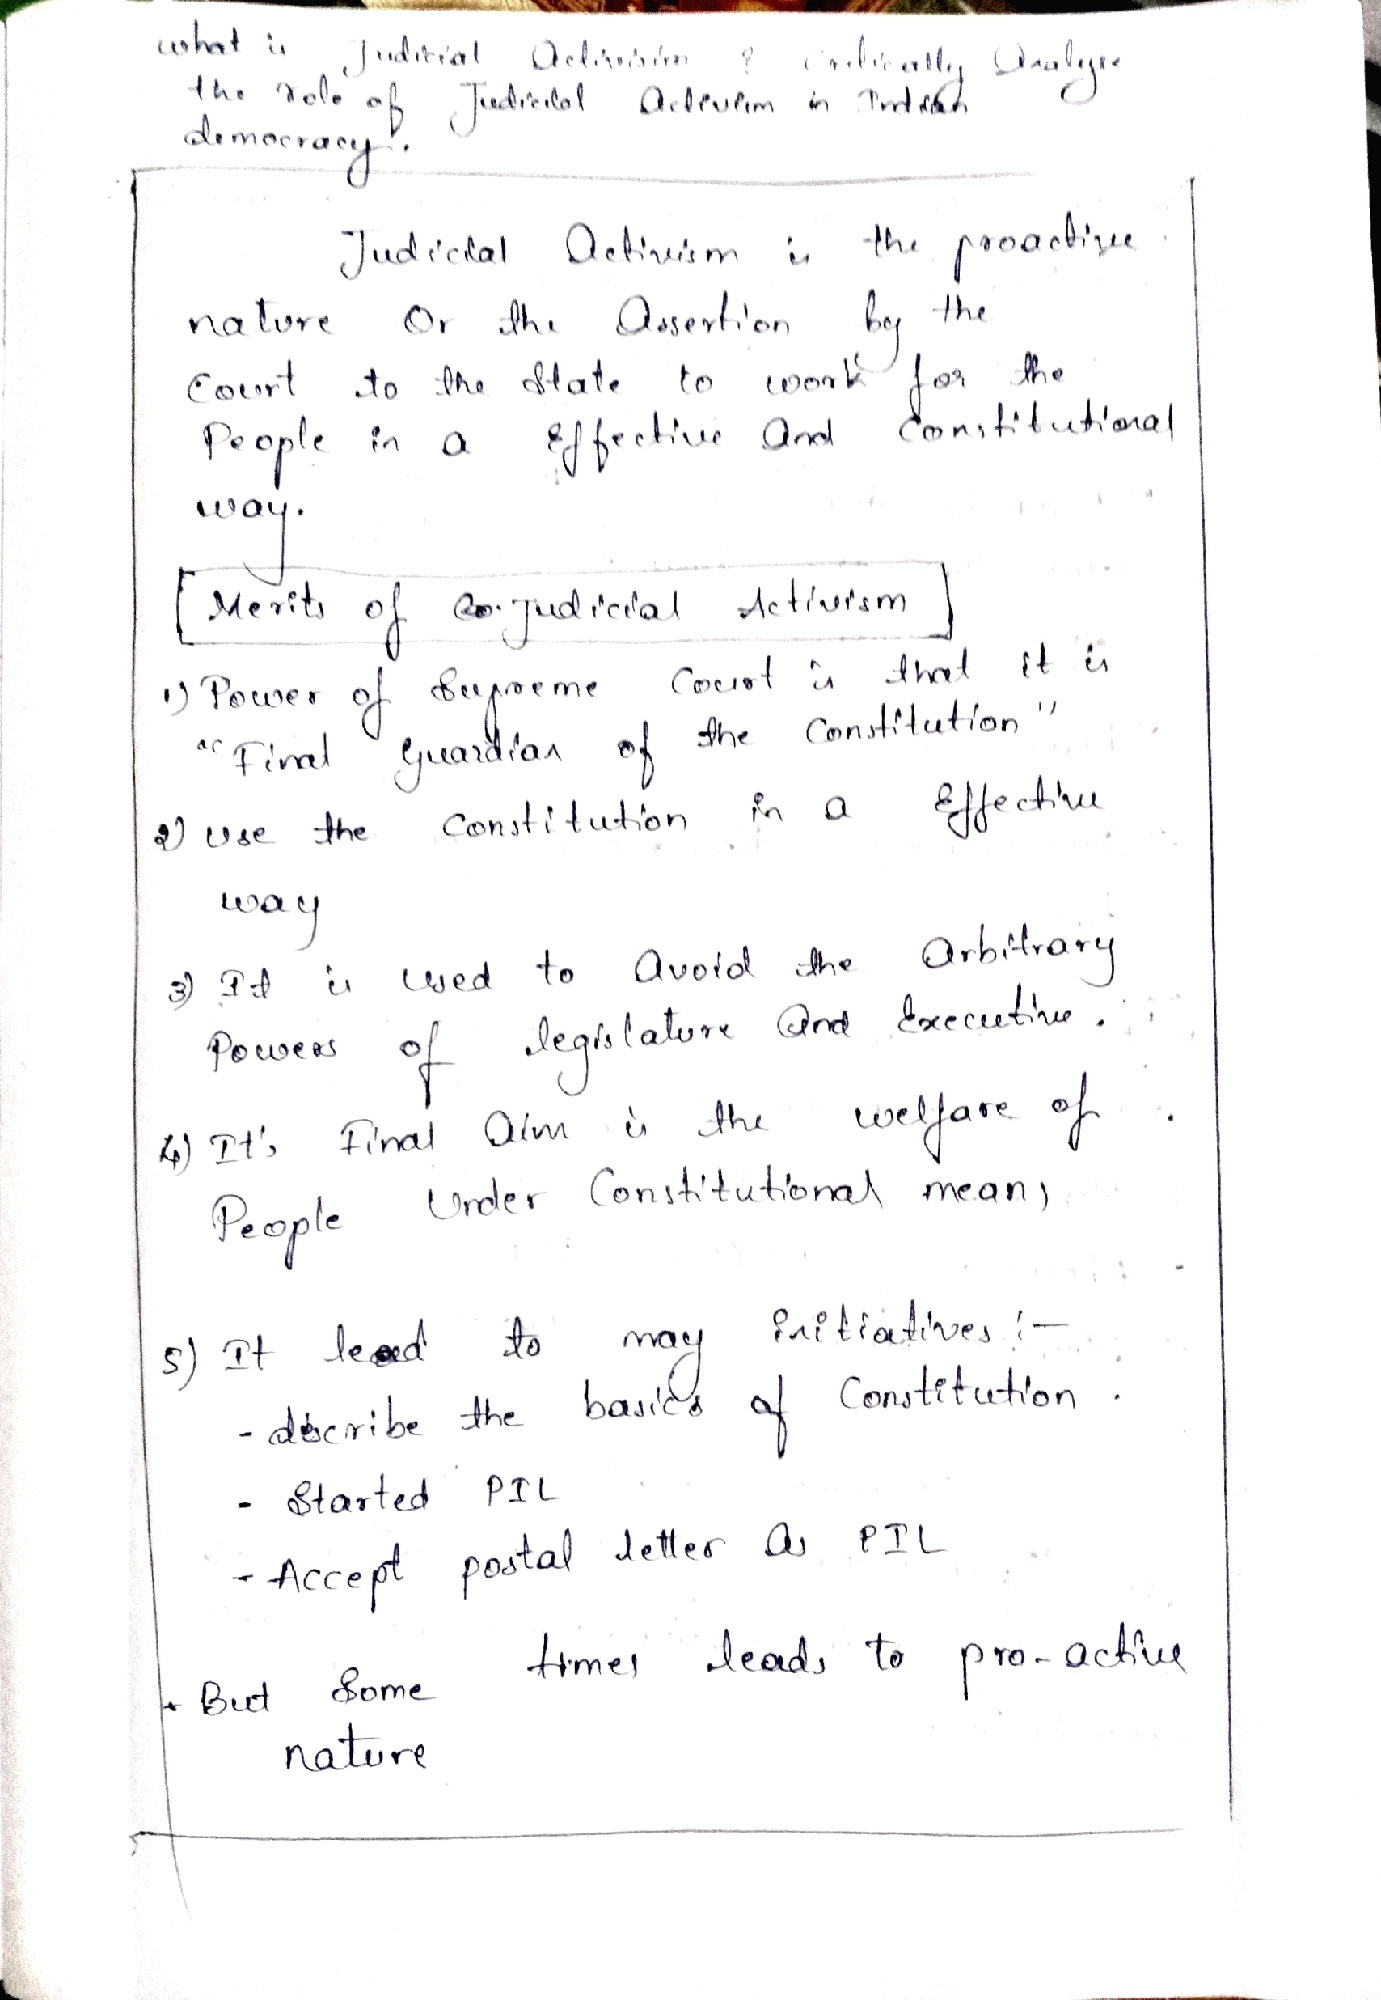 what is Judicial Activism ? critically Analyse
the role of Judicial Activism in Indian
democracy.
Judicial Activism is the proactive
nature or the Assertion by the
Court to the State to work for the
People in a Effective And Constitutional
way.
Merits of Judicial Activism
1) Power of Supreme Court is that it is
as "Final Guardian of the Constitution"
2) Use the Constitution in a Effective
way
3) It is used to Avoid the Arbitrary
Powers of legislature And Executive.
4) It's Final Aim is the welfare of
People Under Constitutional means
5) It lead to may initiatives :-
- describe the basics of Constitution.
- Started PIL
- Accept postal letter As PIL
* But Some times leads to pro-active
nature